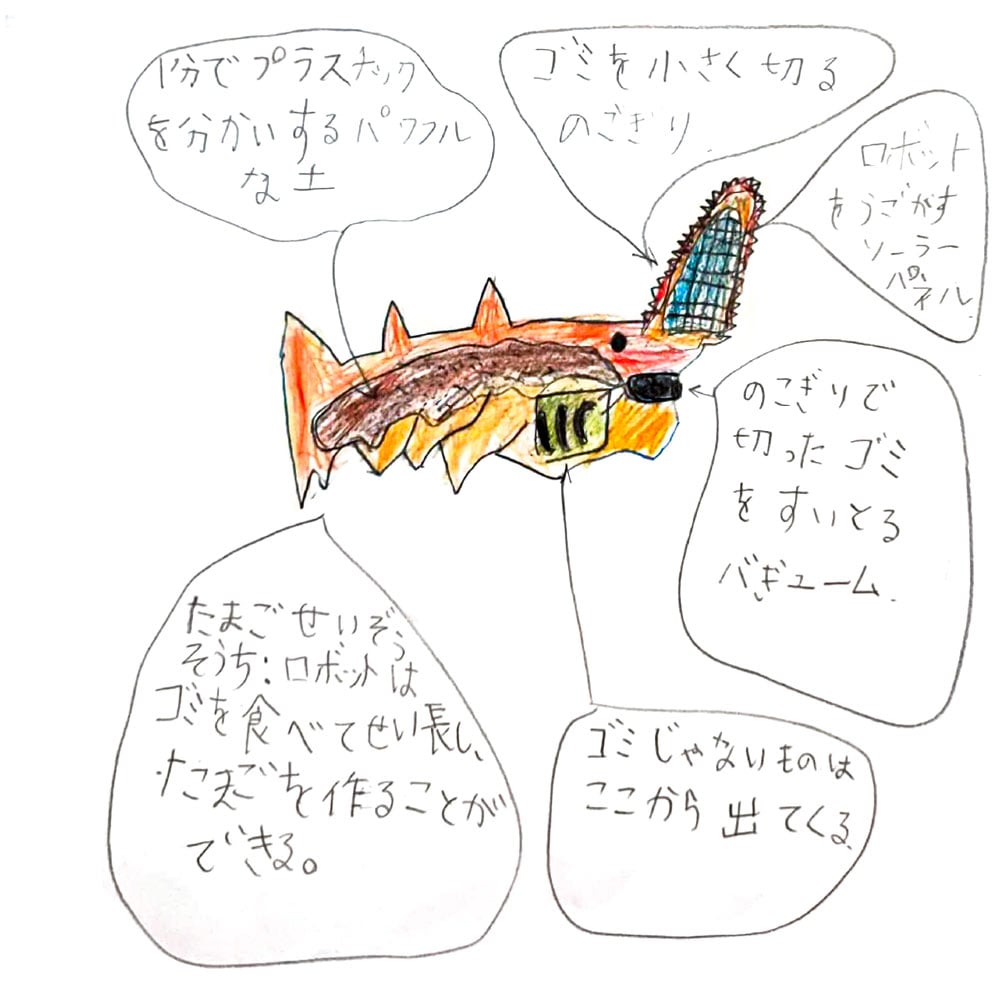 1分でプラスチック
を分かいするパワフル
な土
ゴミを小さく切る
のこぎり
ロボット
をうごがす
ソーラー
パネル
のこぎりで
切ったゴミ
をすいとる
バギューム
たまごせいぞう
そうち:ロボットは
ゴミを食べてせい長し、
たまごを作ることが
できる。
ゴミじゃないものは
ここから出てくる